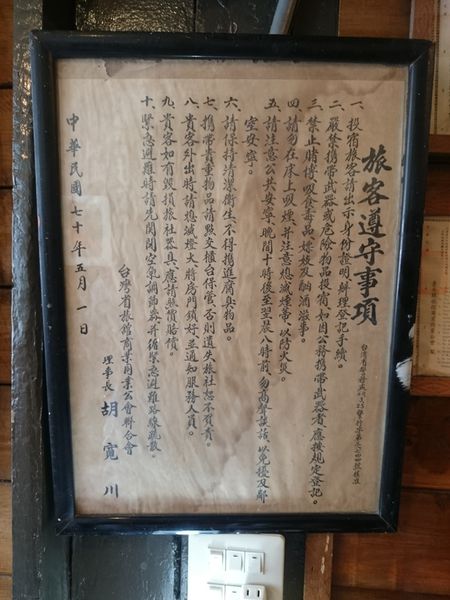 旅客遵守事項
一、投宿旅客請出示身份證明辦理登記手續。
二、嚴禁携帶武器或危險物品投宿，如因公務携帶武器者，應按規定登記。
三、禁止賭博、吸食毒品、嫖妓及酗酒滋事。
四、請勿在床上吸煙，並注意熄滅煙蒂，以防火災。
五、請注意公共安寧，晚間十時後至翌晨八時前，勿高聲談話，以免擾及鄰
室安寧。
六、請保持清潔衛生，不得携進腐臭物品。
七、携帶貴重物品請點交櫃台保管，否則遺失旅社恕不負責。
八、貴客外出時請熄滅燈火，將房門鎖好，並通知服務人員。
九、貴客如有毀損旅社器具，應請照價賠償。
十、緊急避難時請先關閉空氣調節器，並循緊急避難路線疏散。
台灣省旅館商業同業公會聯合會
理事長 胡寬川
中華民國七十年五月一日